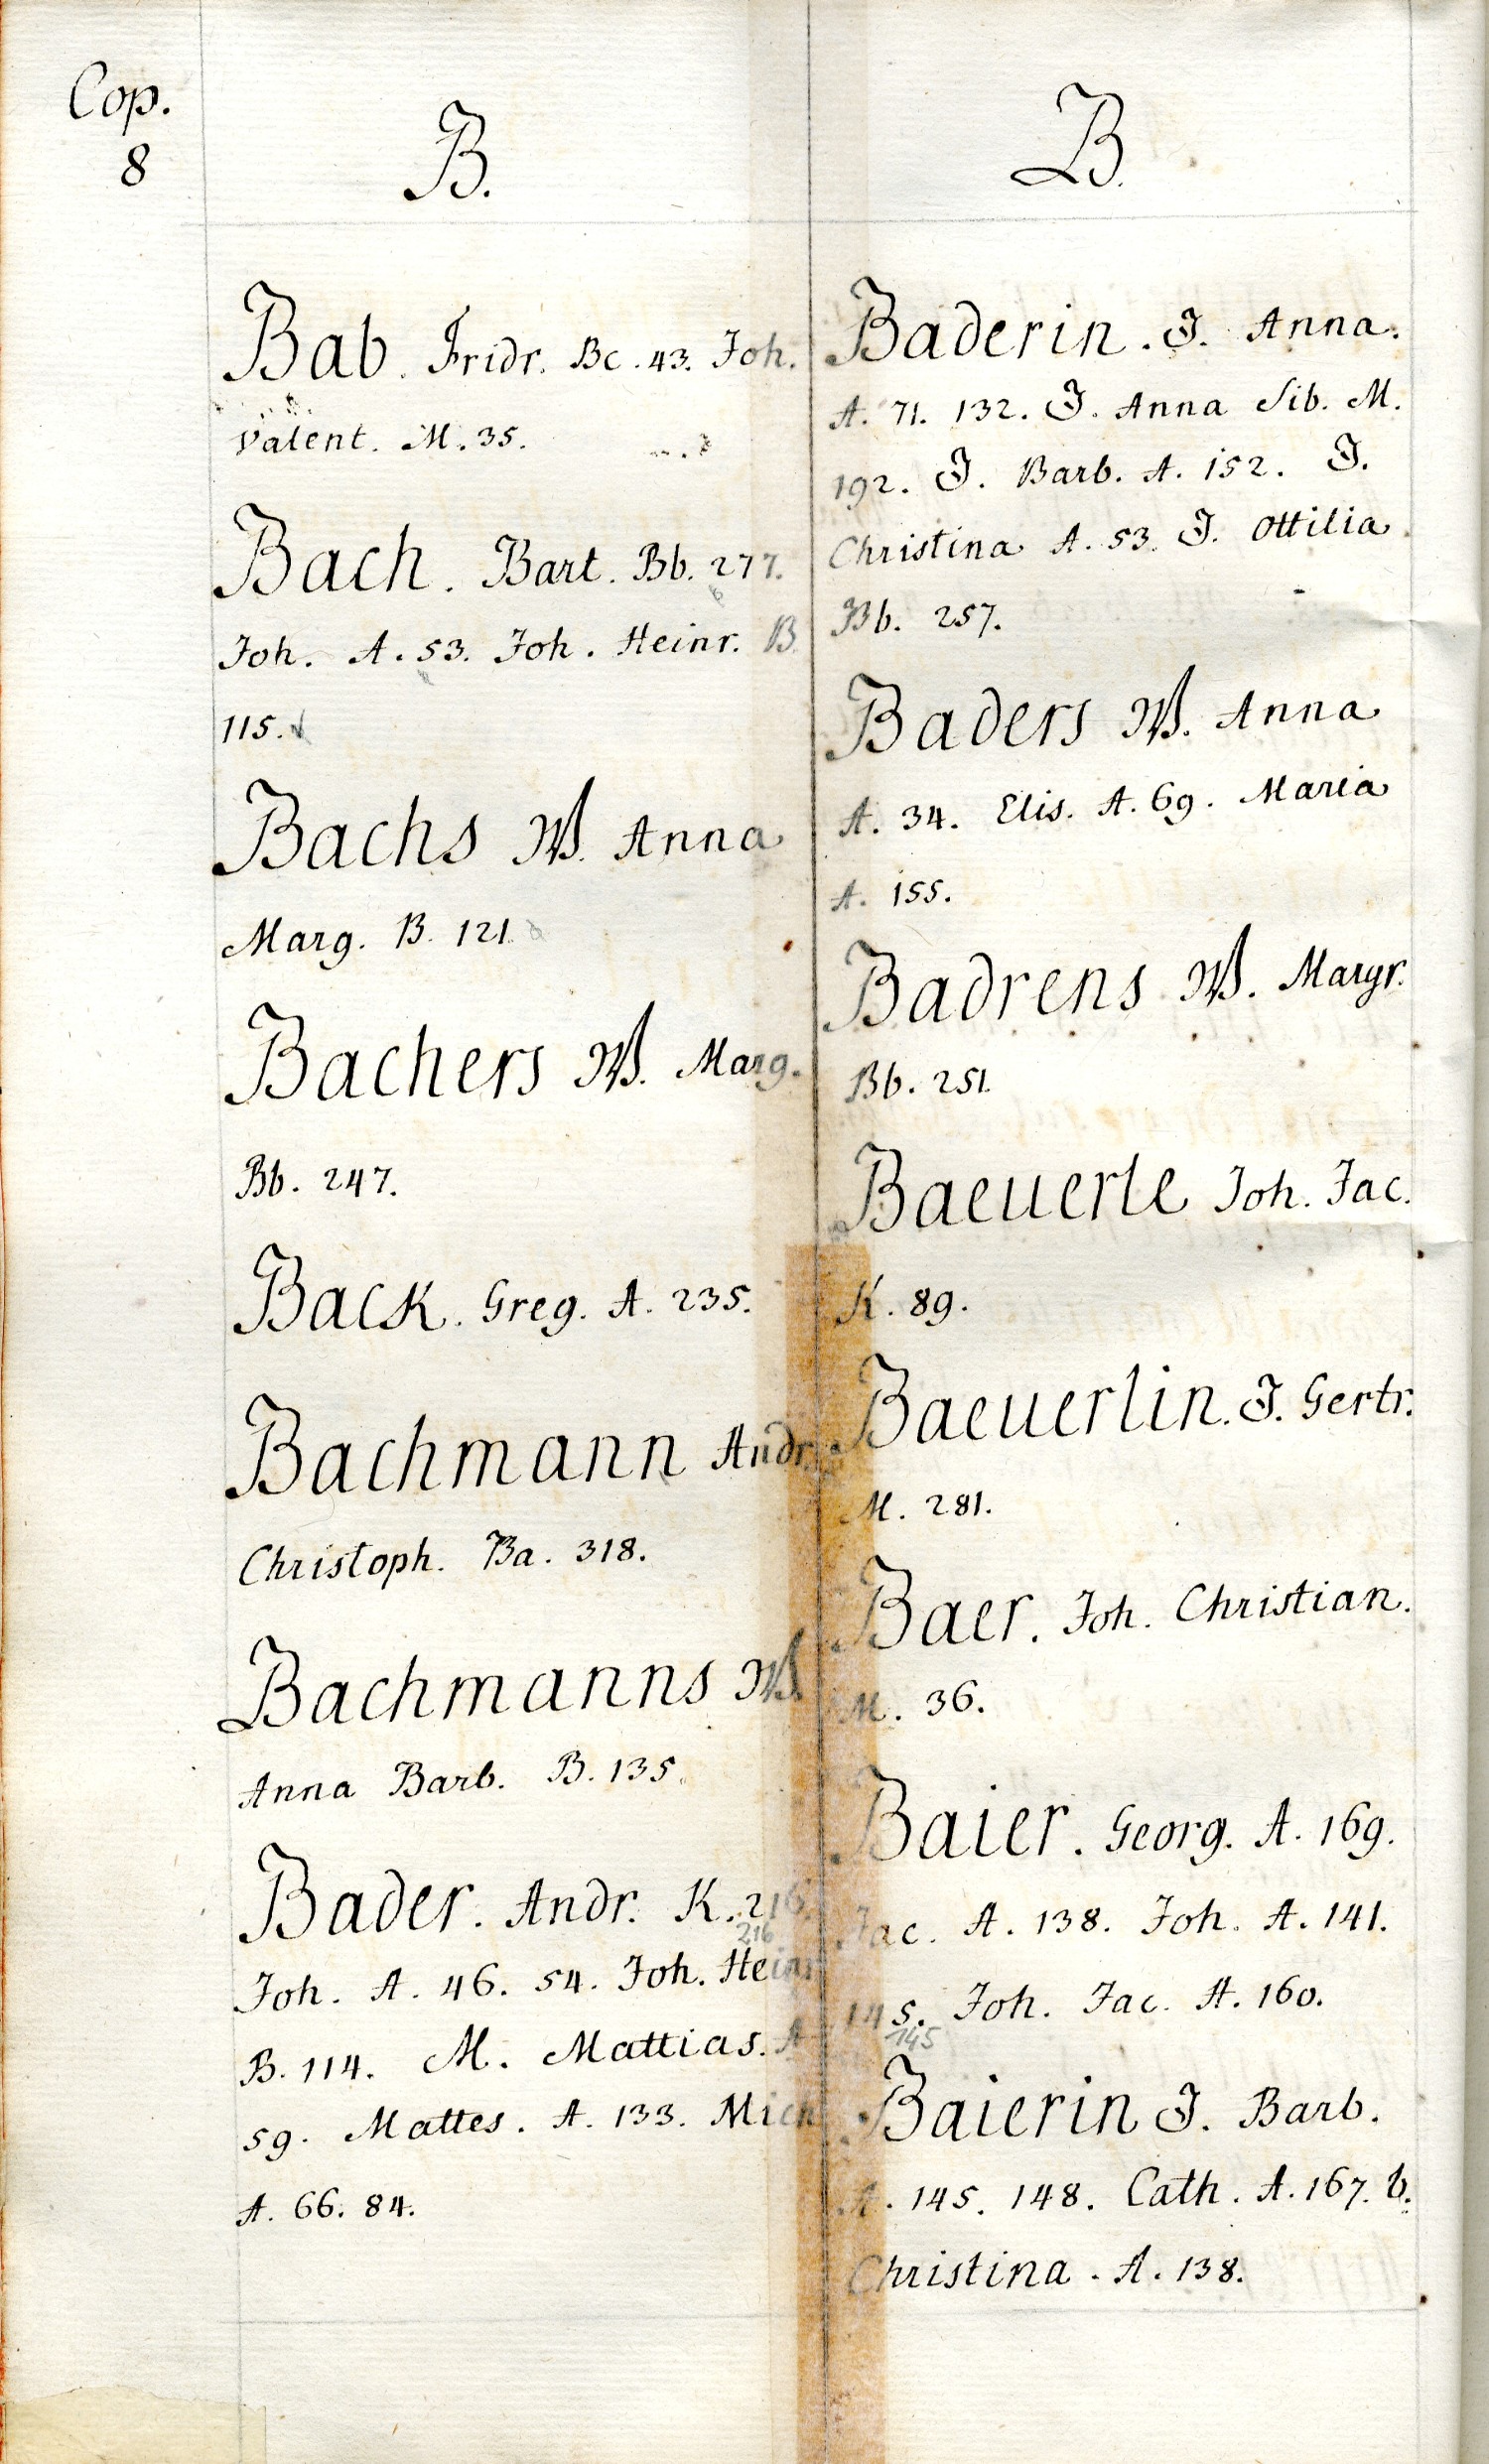 Cop.
8
B.
Bab. Fridr. Bc. 43. Joh.
Valent. M. 35.
Bach. Bart. Bb. 277.
Joh. A. 53. Joh. Heinr. B.
115.
Bachs W. Anna
Marg. B. 121.
Bachers W. Marg.
Bb. 247.
Back. Greg. A. 235.
Bachmann Andr.
Christoph. Ba. 318.
Bachmanns W.
Anna Barb. B. 135.
Bader. Andr. K. 216.
216
Joh. A. 46. 54. Joh. Heinr
B. 114. M. Mattias. A
59. Mattes. A. 133. Mich
A. 66. 84.
B.
Baderin. J. Anna.
A. 71. 132. J. Anna Sib. M.
192. J. Barb. A. 152. J.
Christina A. 53. J. Ottilia
Bb. 257.
Baders W. Anna
A. 34. Elis. A. 69. Maria
A. 155.
Badrens W. Margr.
Bb. 251.
Baeuerle Joh. Jac.
K. 89.
Baeuerlin. J. Gertr.
M. 281.
Baer. Joh. Christian.
M. 36.
Baier. Georg. A. 169.
Jac. A. 138. Joh. A. 141.
145. Joh. Jac. A. 160.
145
Baierin J. Barb.
A. 145. 148. Cath. A. 167. b.
Christina. A. 138.